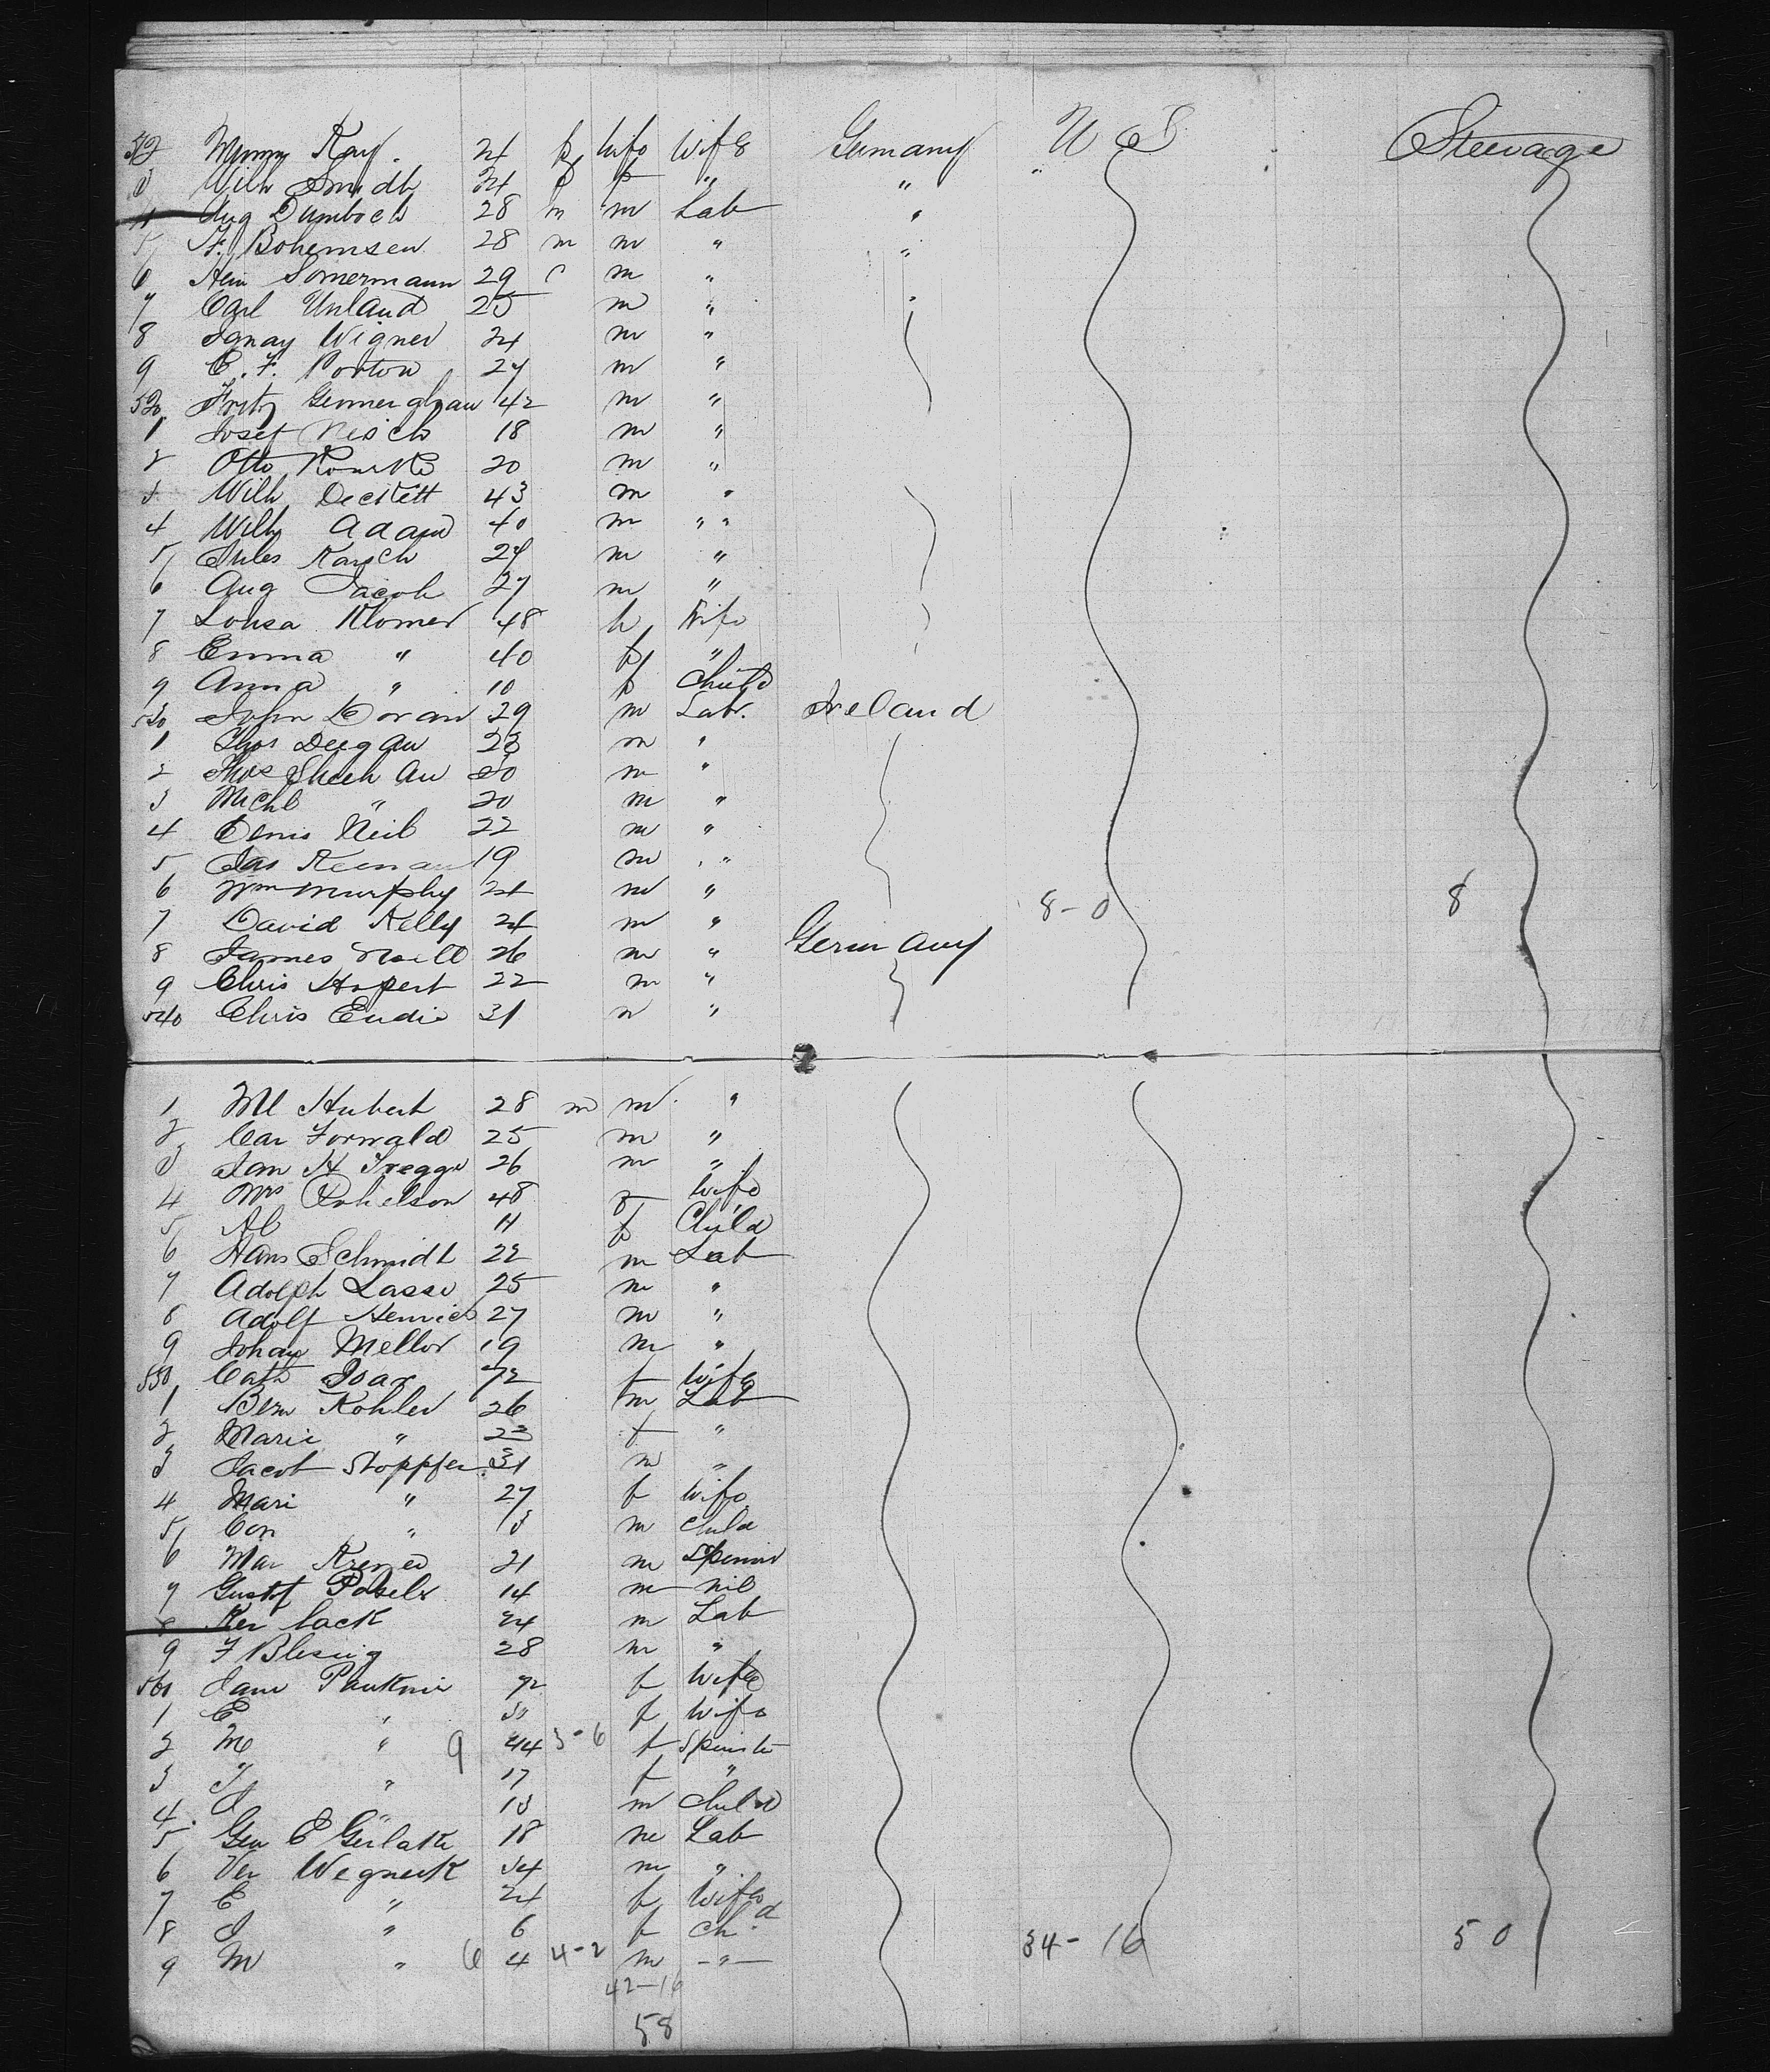 512 Minny Kay. 24 f Wife Wife Germany U S Steerage
3 Wilh Smidth 24 f f " "
4 Aug Dumboch 28 m m Lab "
5 F. Bohemsen 28 m m " "
6 Hein Somermann 29 m "
7 Carl Unland 25 m " "
8 Ignay Wigner 24 m "
9 C. F. Porton 27 m "
520 Fritz Germerghau 42 m "
1 Josef 18 m "
2 Otto 20 m "
3 Wilh Deckett 43 m "
4 Wilh Adam 40 m " "
5 Jules Karsch 24 m "
6 Aug Jacob 27 m "
7 Louisa Klomer 48 Wife
8 Emma " 40 f "
9 Anna " 10 f Child
530 John Doran 29 m Labr. Ireland
1 Thos Deegan 23 m "
2 Thos Sheehan 20 m "
3 Michl " 20 m "
4 Denis Neil 22 m "
5 Jas Keenan 19 m "
6 Wm Murphy 24 m "
7 David Kelly 24 m " 8-0 8
8 James Neill 26 m " Germany
9 Chris Hopert 22 m "
540 Chris Eudie 31 m "
1 Ml Hubert 28 m m "
2 Car Forwald 25 m "
3 Jan H Tregge 26 m "
4 Mrs 48 f Wife
5 Al 11 f Child
6 Hans Schmidt 22 m Lab
7 Adolph Lasse 25 m "
8 Adolf Henrich 27 m "
9 Johan Mellor 19 m "
550 Cath Isar 72 f Wife
1 Bern Kohler 26 m Lab
2 Marie " 23 f "
3 Jacob Stoppfer 31 m "
4 Mari " 27 f Wife
5 Con " 13 m Child
6 Mar 21 m
7 Gustof Posels 14 m nil
8 Ker lack 24 m Lab
9 F Blesing 28 m "
560 Jane Pautknie 72 f Wife
1 E " f Wife
2 M " 9 44 3-6 f Spinster
3 " 17 f "
4 J " 13 m Child
5 Geo E Gerlake 18 m Lab
6 Ver Wegnerk 34 m "
7 E " 24 f Wife
8 J " 6 f Chd
9 M " 6 4 4-2 m -"- 34-16 50
42-16
58